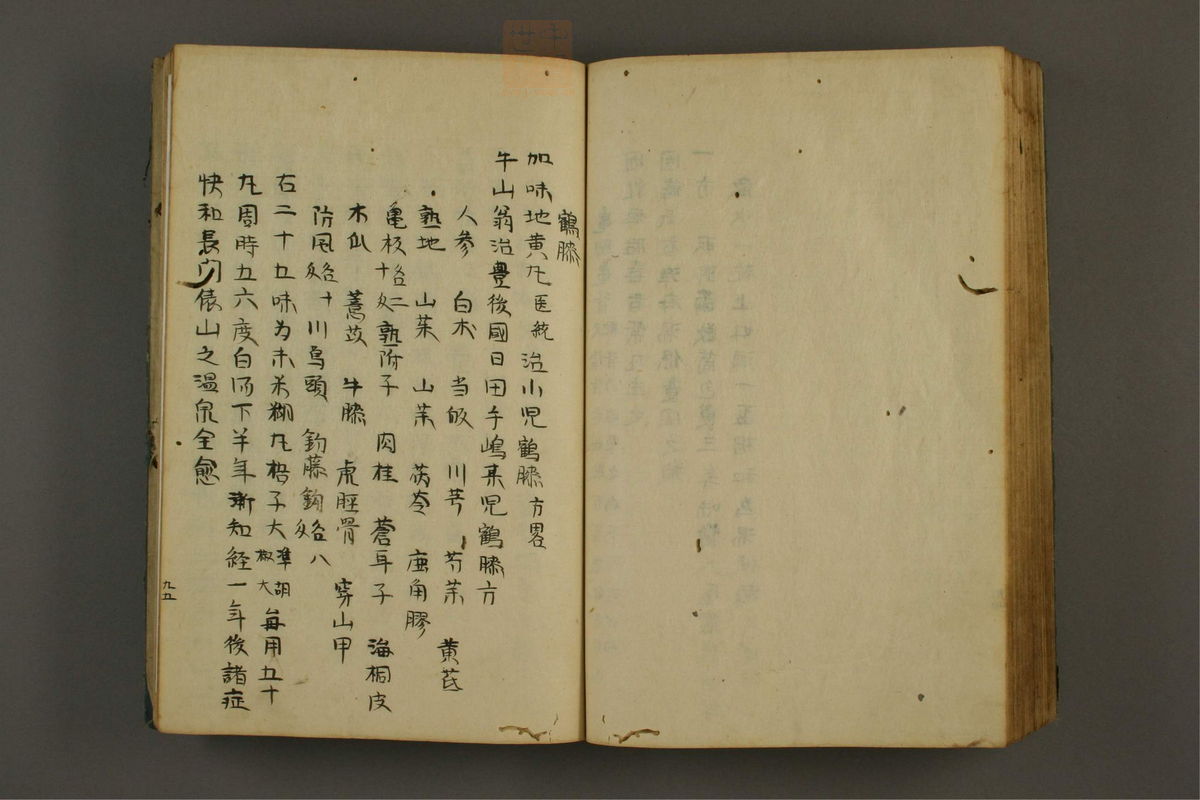 鶴膝
加味地黄丸医統治小児鶴膝方畧
牛山翁治豊後國日田手嶋某児鶴膝方
人参 白朮 当皈 川芎 芍薬 黄芪
熟地 山茱 山薬 茯苓 鹿角膠
亀板各二十匁 熟附子 肉桂 蒼耳子 海桐皮
木瓜 薏苡 牛膝 虎脛骨 穿山甲
防風各十匁 川烏頭 鈎藤鈎各八匁
右二十五味为末米糊丸梧子大準胡椒大毎用五十
丸周時五六度白湯下半年漸知経一年後諸症
快和長门俵山之温泉全愈
九五